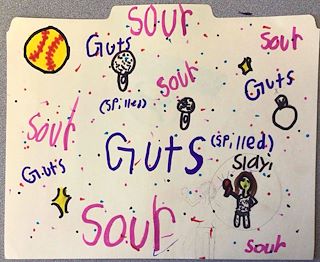 Sour
Guts
Sour
Sour
Guts
(Spilled)
Sour
Guts
Guts
(Spilled)
Slay!
Sour
Sour